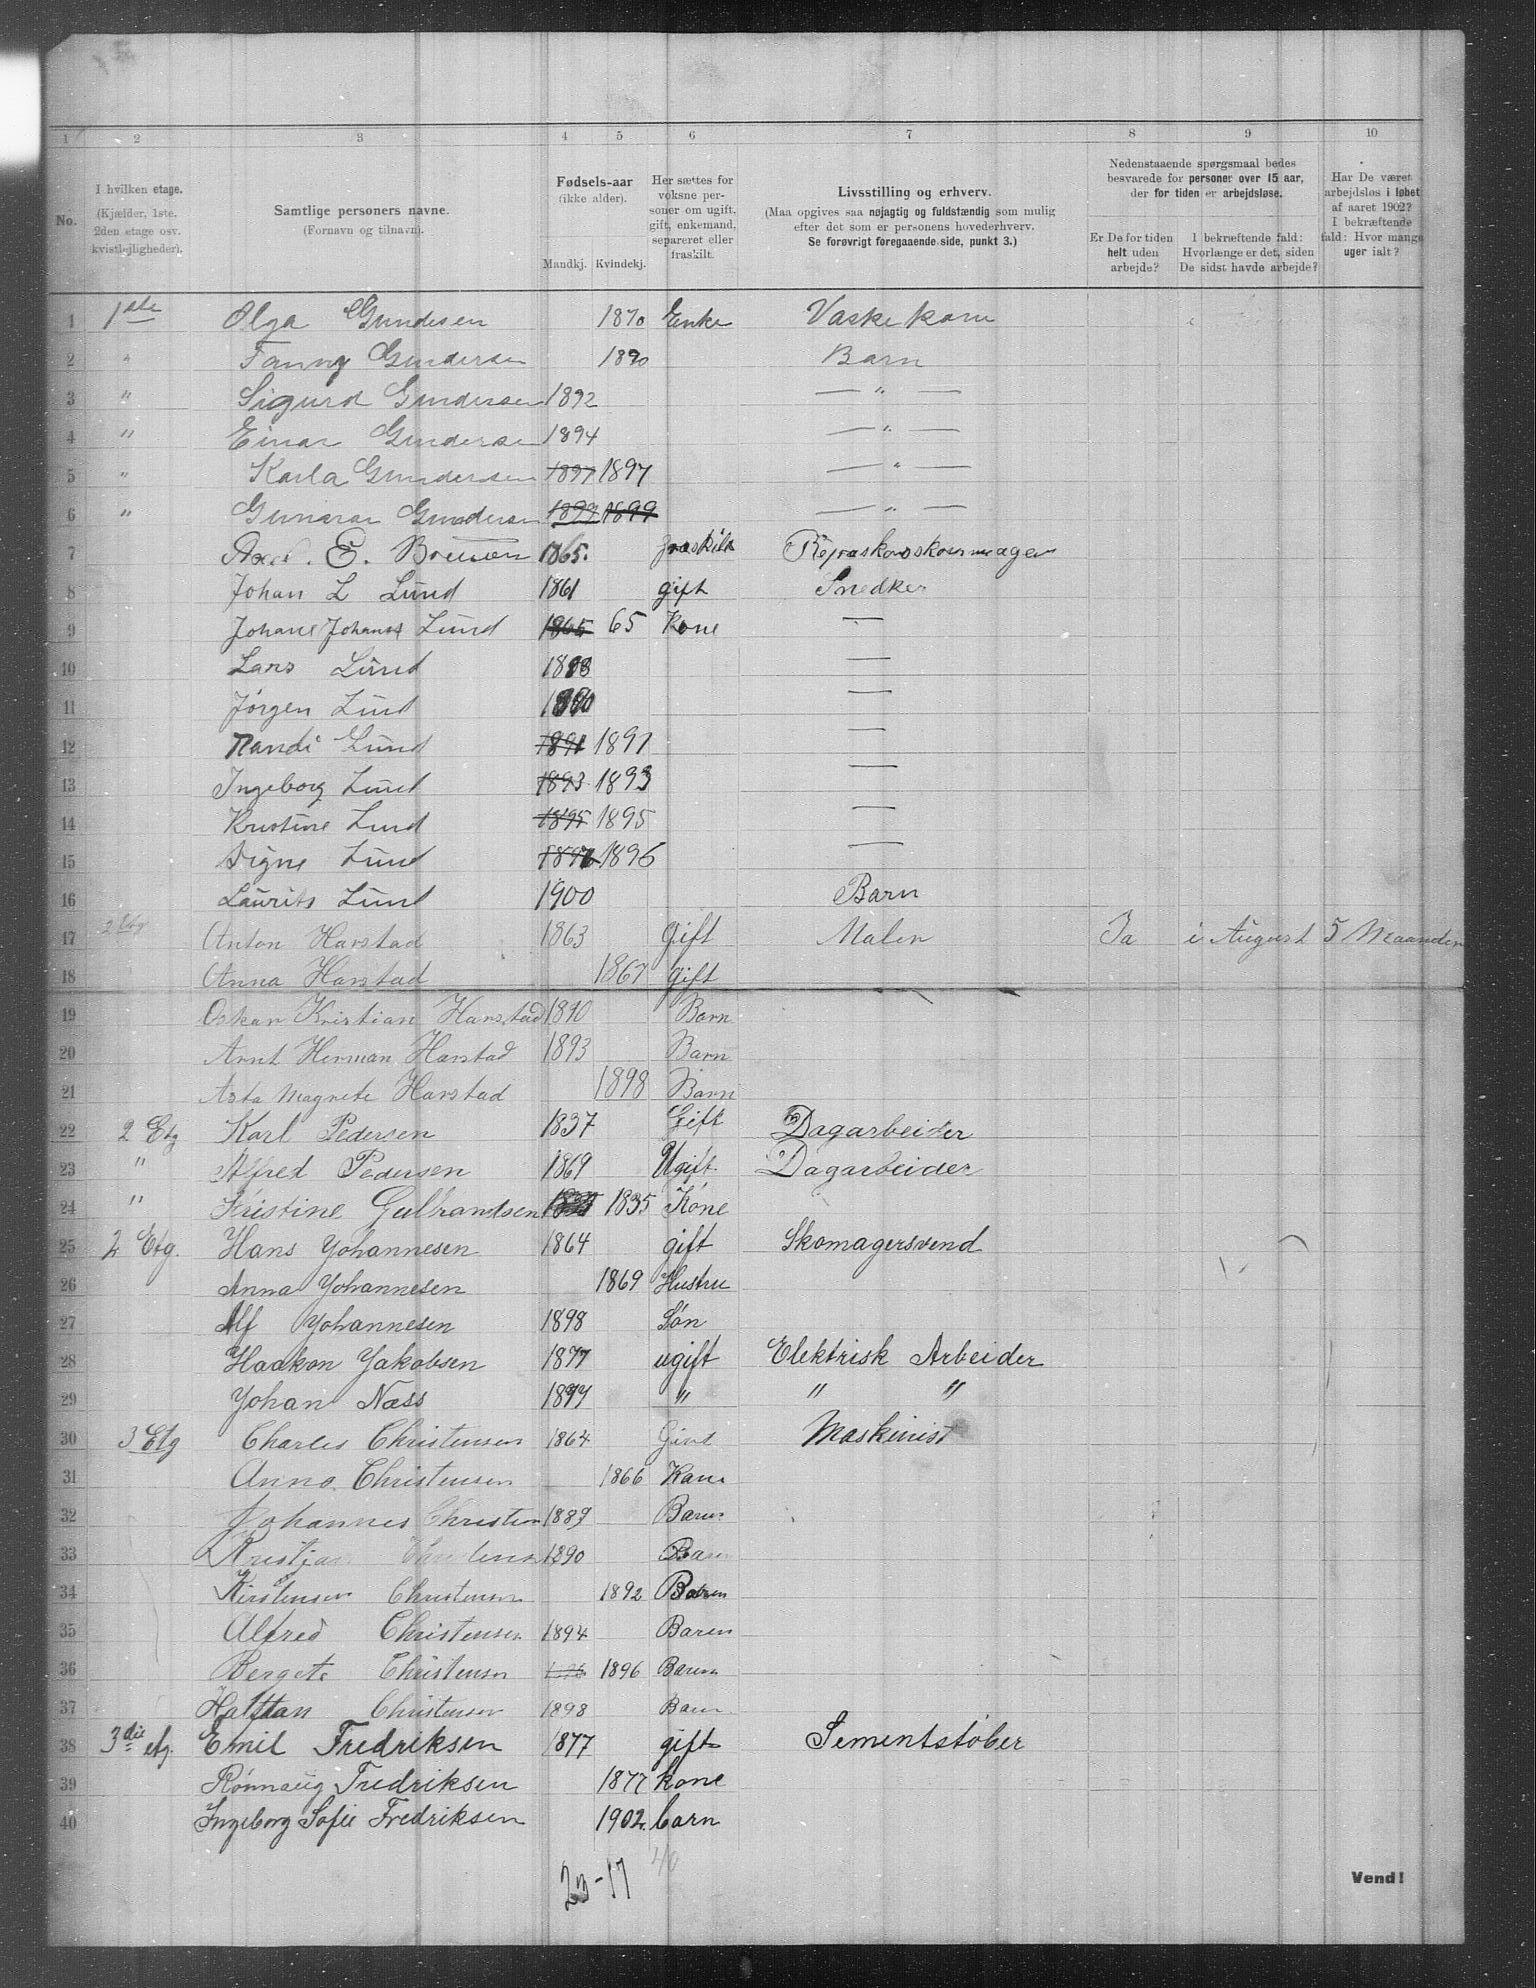 1 2 3 4 5 6 7 8 9 10
No. I hvilken etage. (Kjælder, 1ste. 2den etage osv. kvistlejligheder). Samtlige personers navne. (Fornavn og tilnavn). Fødsels-aar (ikke alder). Mandkj. Kvindekj. Her sættes for voksne personer om ugift, gift, enkemand, separeret eller fraskilt. Livsstilling og erhverv. (Maa opgives saa nøjagtig og fuldstændig som mulig efter det som er personens hovederhverv. Se forøvrigt foregaaende side, punkt 3.) Nedenstaaende spørgsmaal bedes besvarede for personer over 15 aar, der for tiden er arbejdsløse. Er De for tiden helt uden arbejde? I bekræftende fald: Hvorlænge er det, siden De sidst havde arbejde? Har De været arbejdsløs i løbet af aaret 1902? I bekræftende fald: Hvor mange uger ialt?
1 1ste Olga Gundesen 1870 Enke Vaskekone
2 " Fanny Gundersen 1890 Barn
3 " Sigurd Gundersen 1892 — " —
4 " Einar Gundersen 1894 — " —
5 " Karla Gundersen 1897 1897 — " —
6 " Gunnar Gundersen 1899 1899 — " —
7 Axel. E. 1865. fraskilt
8 Johan L Lund 1861 gift Snedker
9 Johane Lund 1865 65 Kone —
10 Lars Lund —
11 Jörgen Lund —
12 Randi Lund 1891 1891 —
13 Ingeborg Lund 1893 1893 —
14 Kristine Lund 1895 1895 —
15 Signe Lund 1896 1896 —
16 Laurits Lund 1900 Barn
17 2 Etg Anton Harstad 1863 Gift Maler Ja i August 5 Maaneder
18 Anna Harstad 1867 gift
19 Oskar Kristian Harstad 1890 Barn
20 Arnt Herman Harstad 1893 Barn
21 Asta Magnete Harstad 1898 Barn
22 2 Etg Karl Pedersen 1837 Gift Dagarbeider
23 " Alfred Pedersen 1869 Ugift Dagarbeider
24 " Kristine Gulbrandsen 1835 1835 Kone
25 2 Etg. Hans Yohannesen 1864 gift Skomagersvend
26 Anna Yohannesen 1869 Hustru
27 Alf Yohannesen 1898 Sön
28 Haakon Yakobsen 1877 ugift Elektrisk Arbeider
29 Yohan Næss 1877 " " "
30 3 Etg Charles Christensen 1864 Givt Maskinist
31 Anna Christensen 1866 Kone
32 Johannes Christen 1889 Baren
33 Kristjan Christensen 1890 Baren
34 Kirstensen Christensen 1892 Baren
35 Alfred Christensen 1894 Baren
36 Bergete Christensen 1896 1896 Baren
37 Halftan Christensen 1898 Baren
38 3die etg. Emil Fredriksen 1877 gift Sementstøber
39 Rönnaug Fredriksen 1877 kone
40 Ingeborg Sofie Fredriksen 1902. barn
23-17 40
Vend!